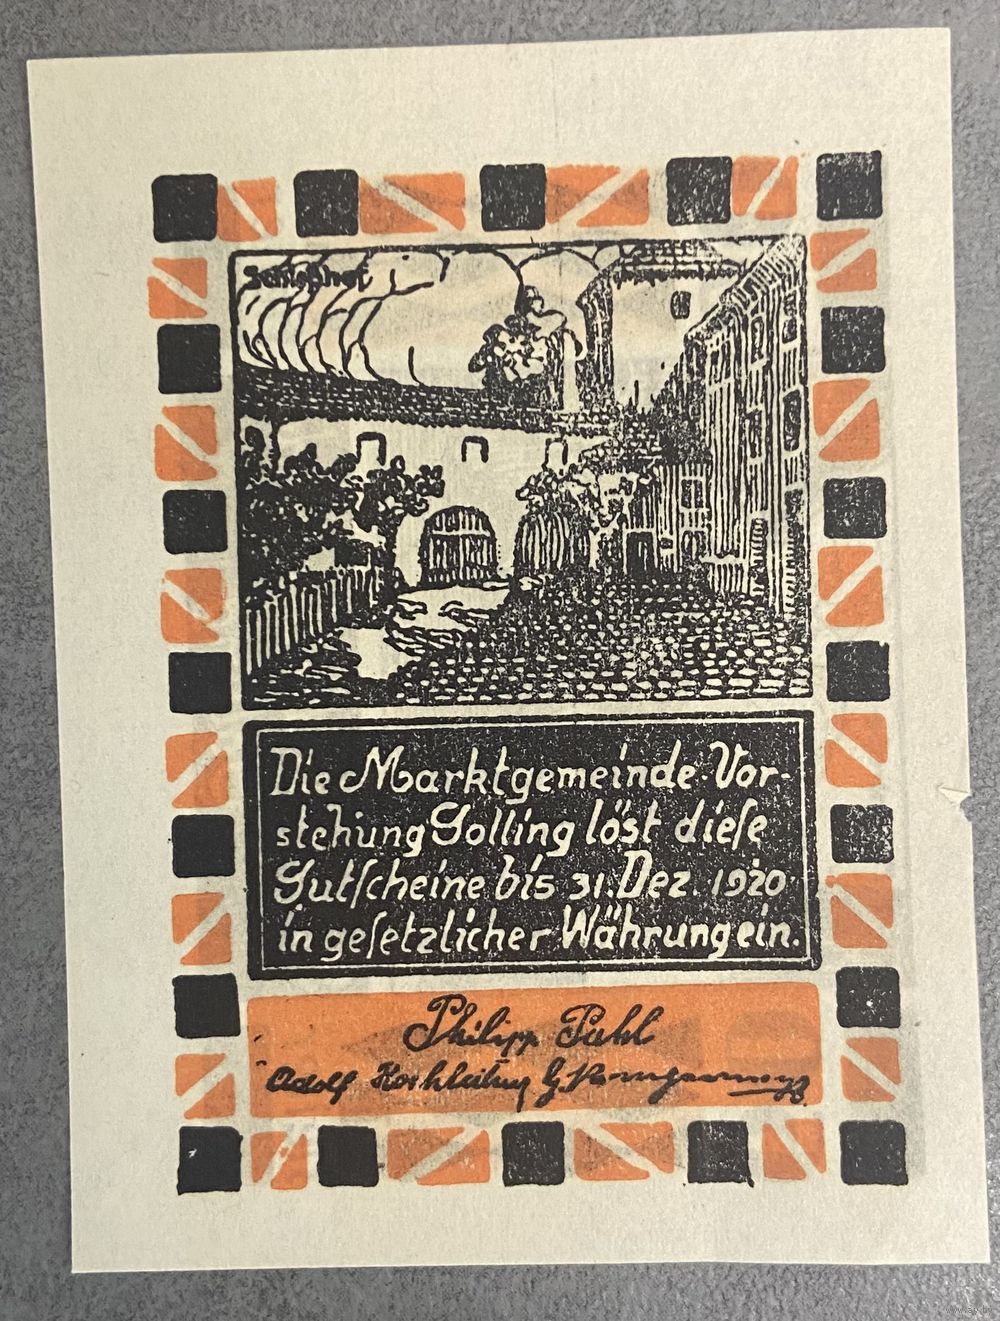 Schloßhof
Die Marktgemeinde-Vor-
stehung Golling löst dieſe
Gutſcheine bis 31. Dez. 1920
in geſetzlicher Währung ein.
Philipp Pahl
Adolf
www.ay.by